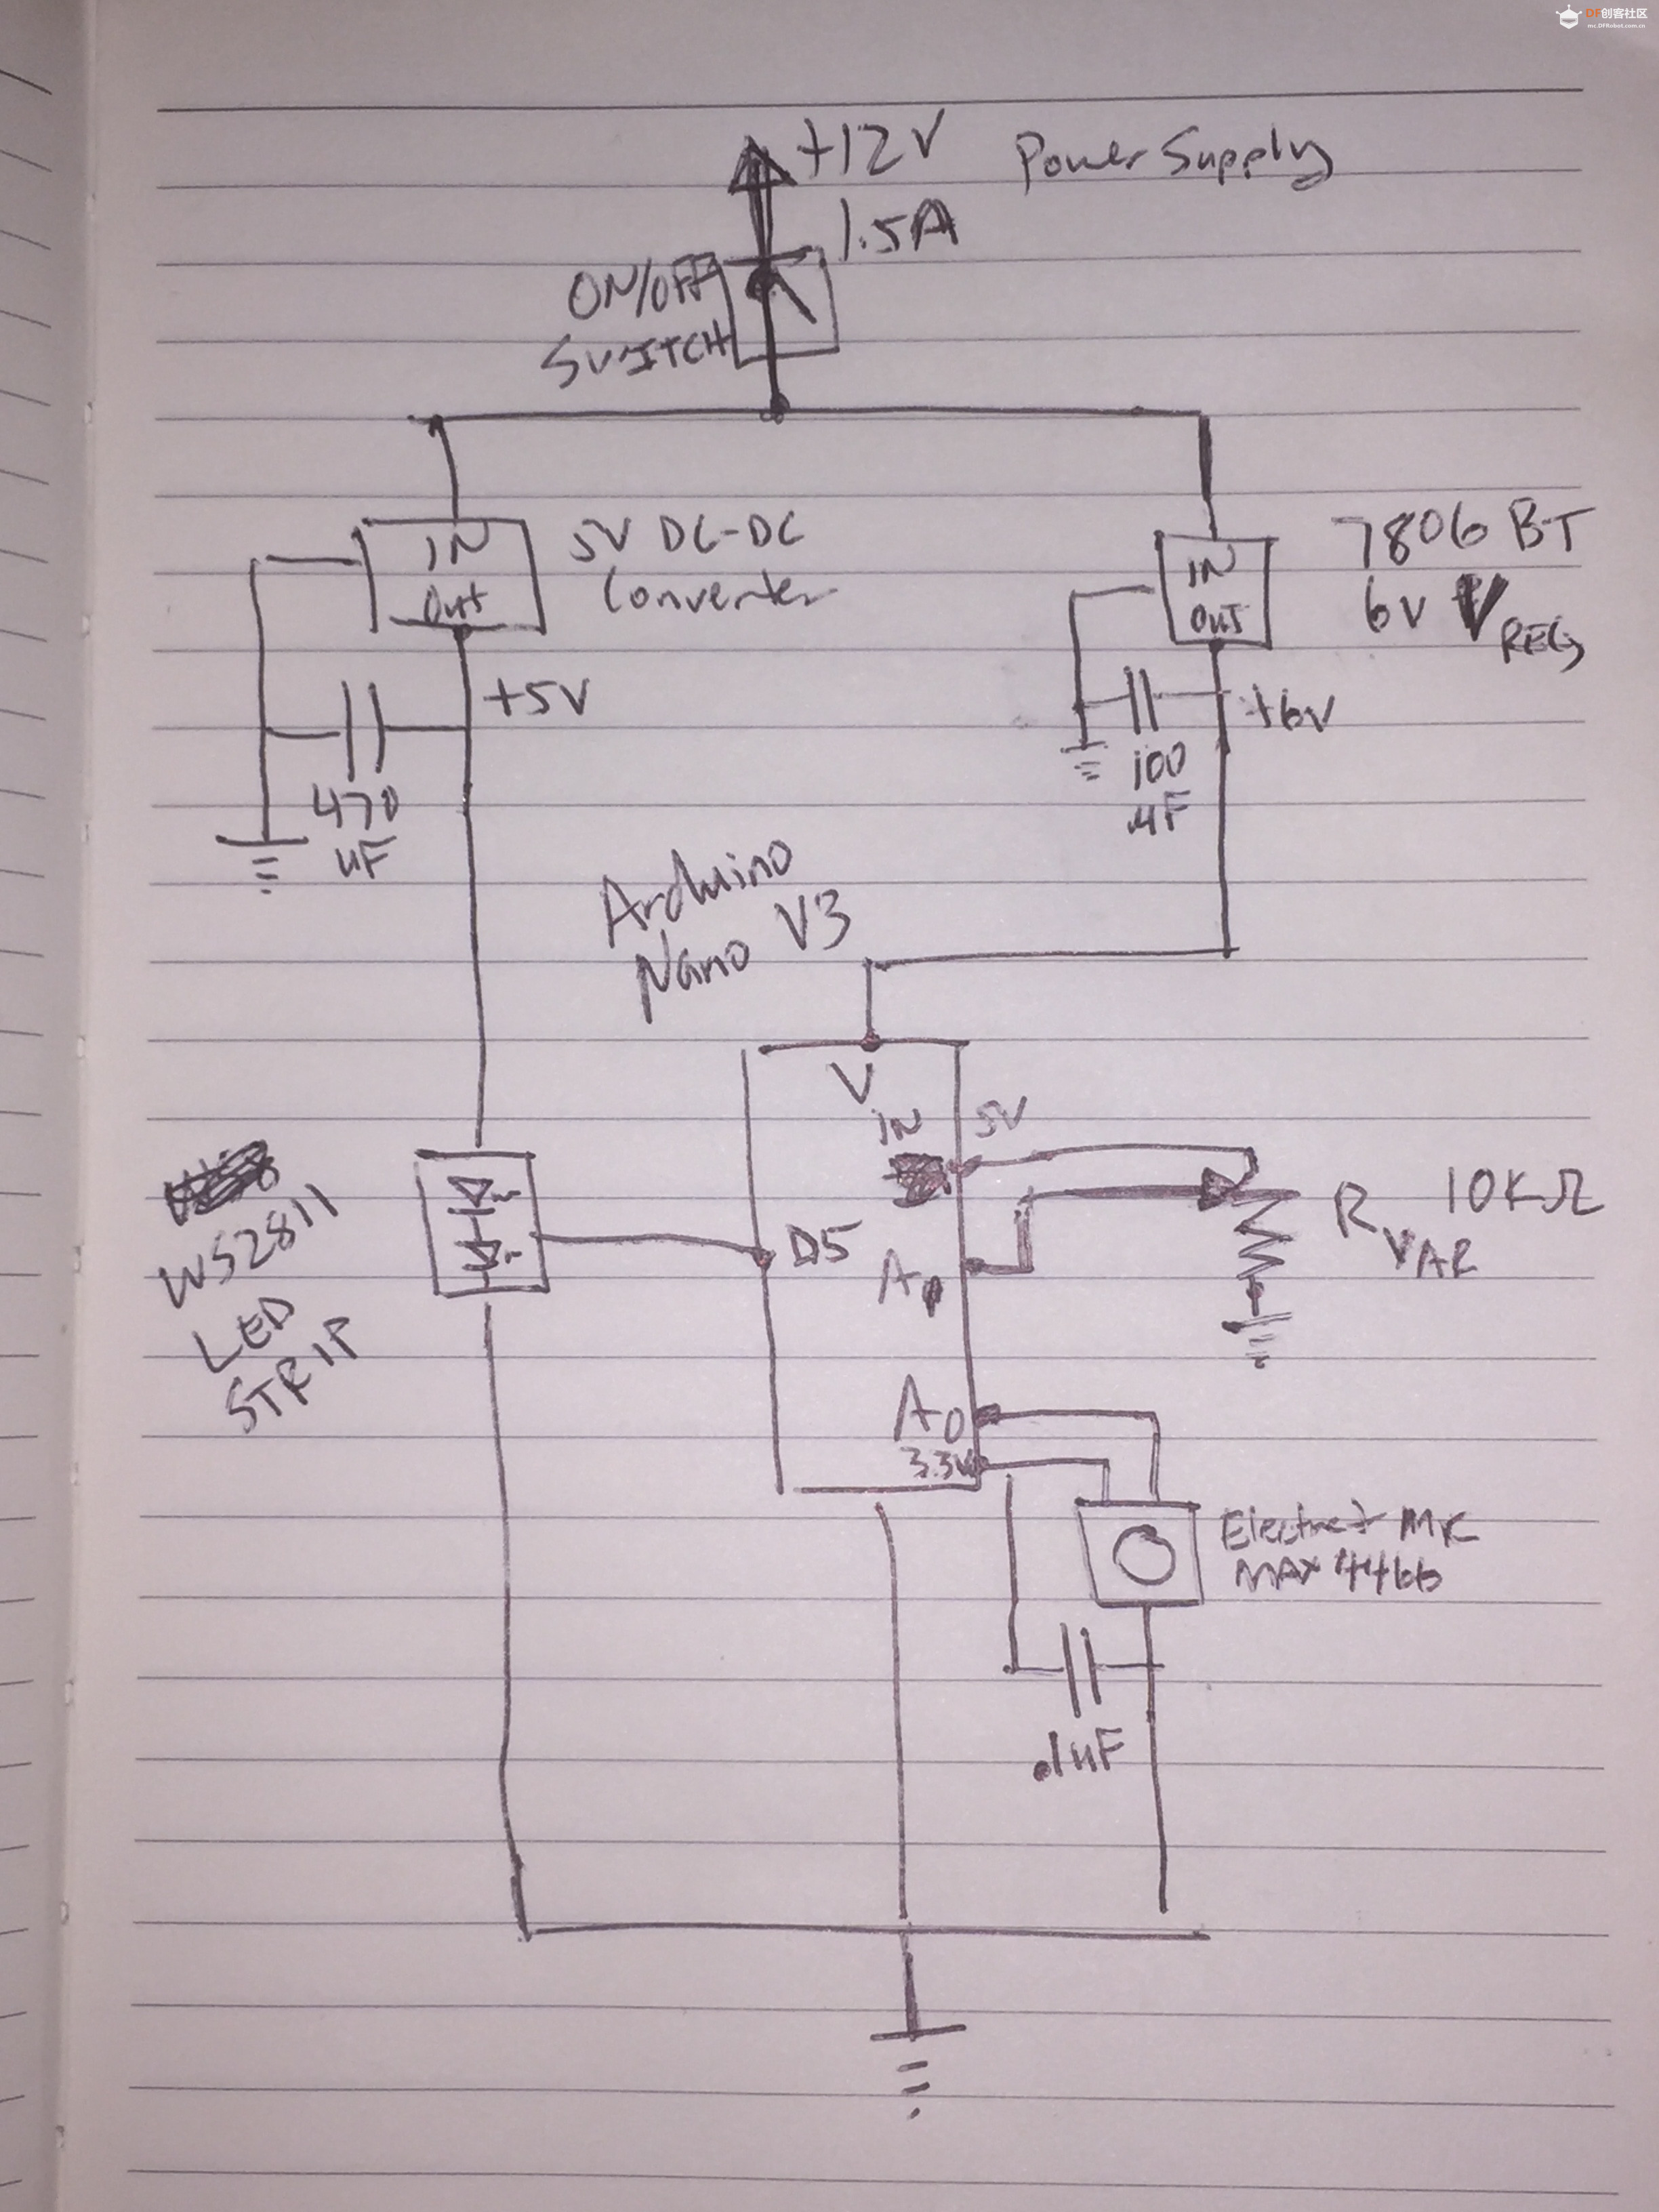 DF创客社区
mc.DFRobot.com.cn
+12V Power Supply
1.5A
ON/OFF
SWITCH
IN
Out
5V DC-DC
Converter
IN
OUT
7806 BT
6V V REG
+5V
+6V
470
uF
100
µF
Arduino
Nano V3
V
IN
5V
WS2811
LED
STRIP
D5
R VAR 10KΩ
A0
3.3V
Electret MIC
MAX4466
.1uF